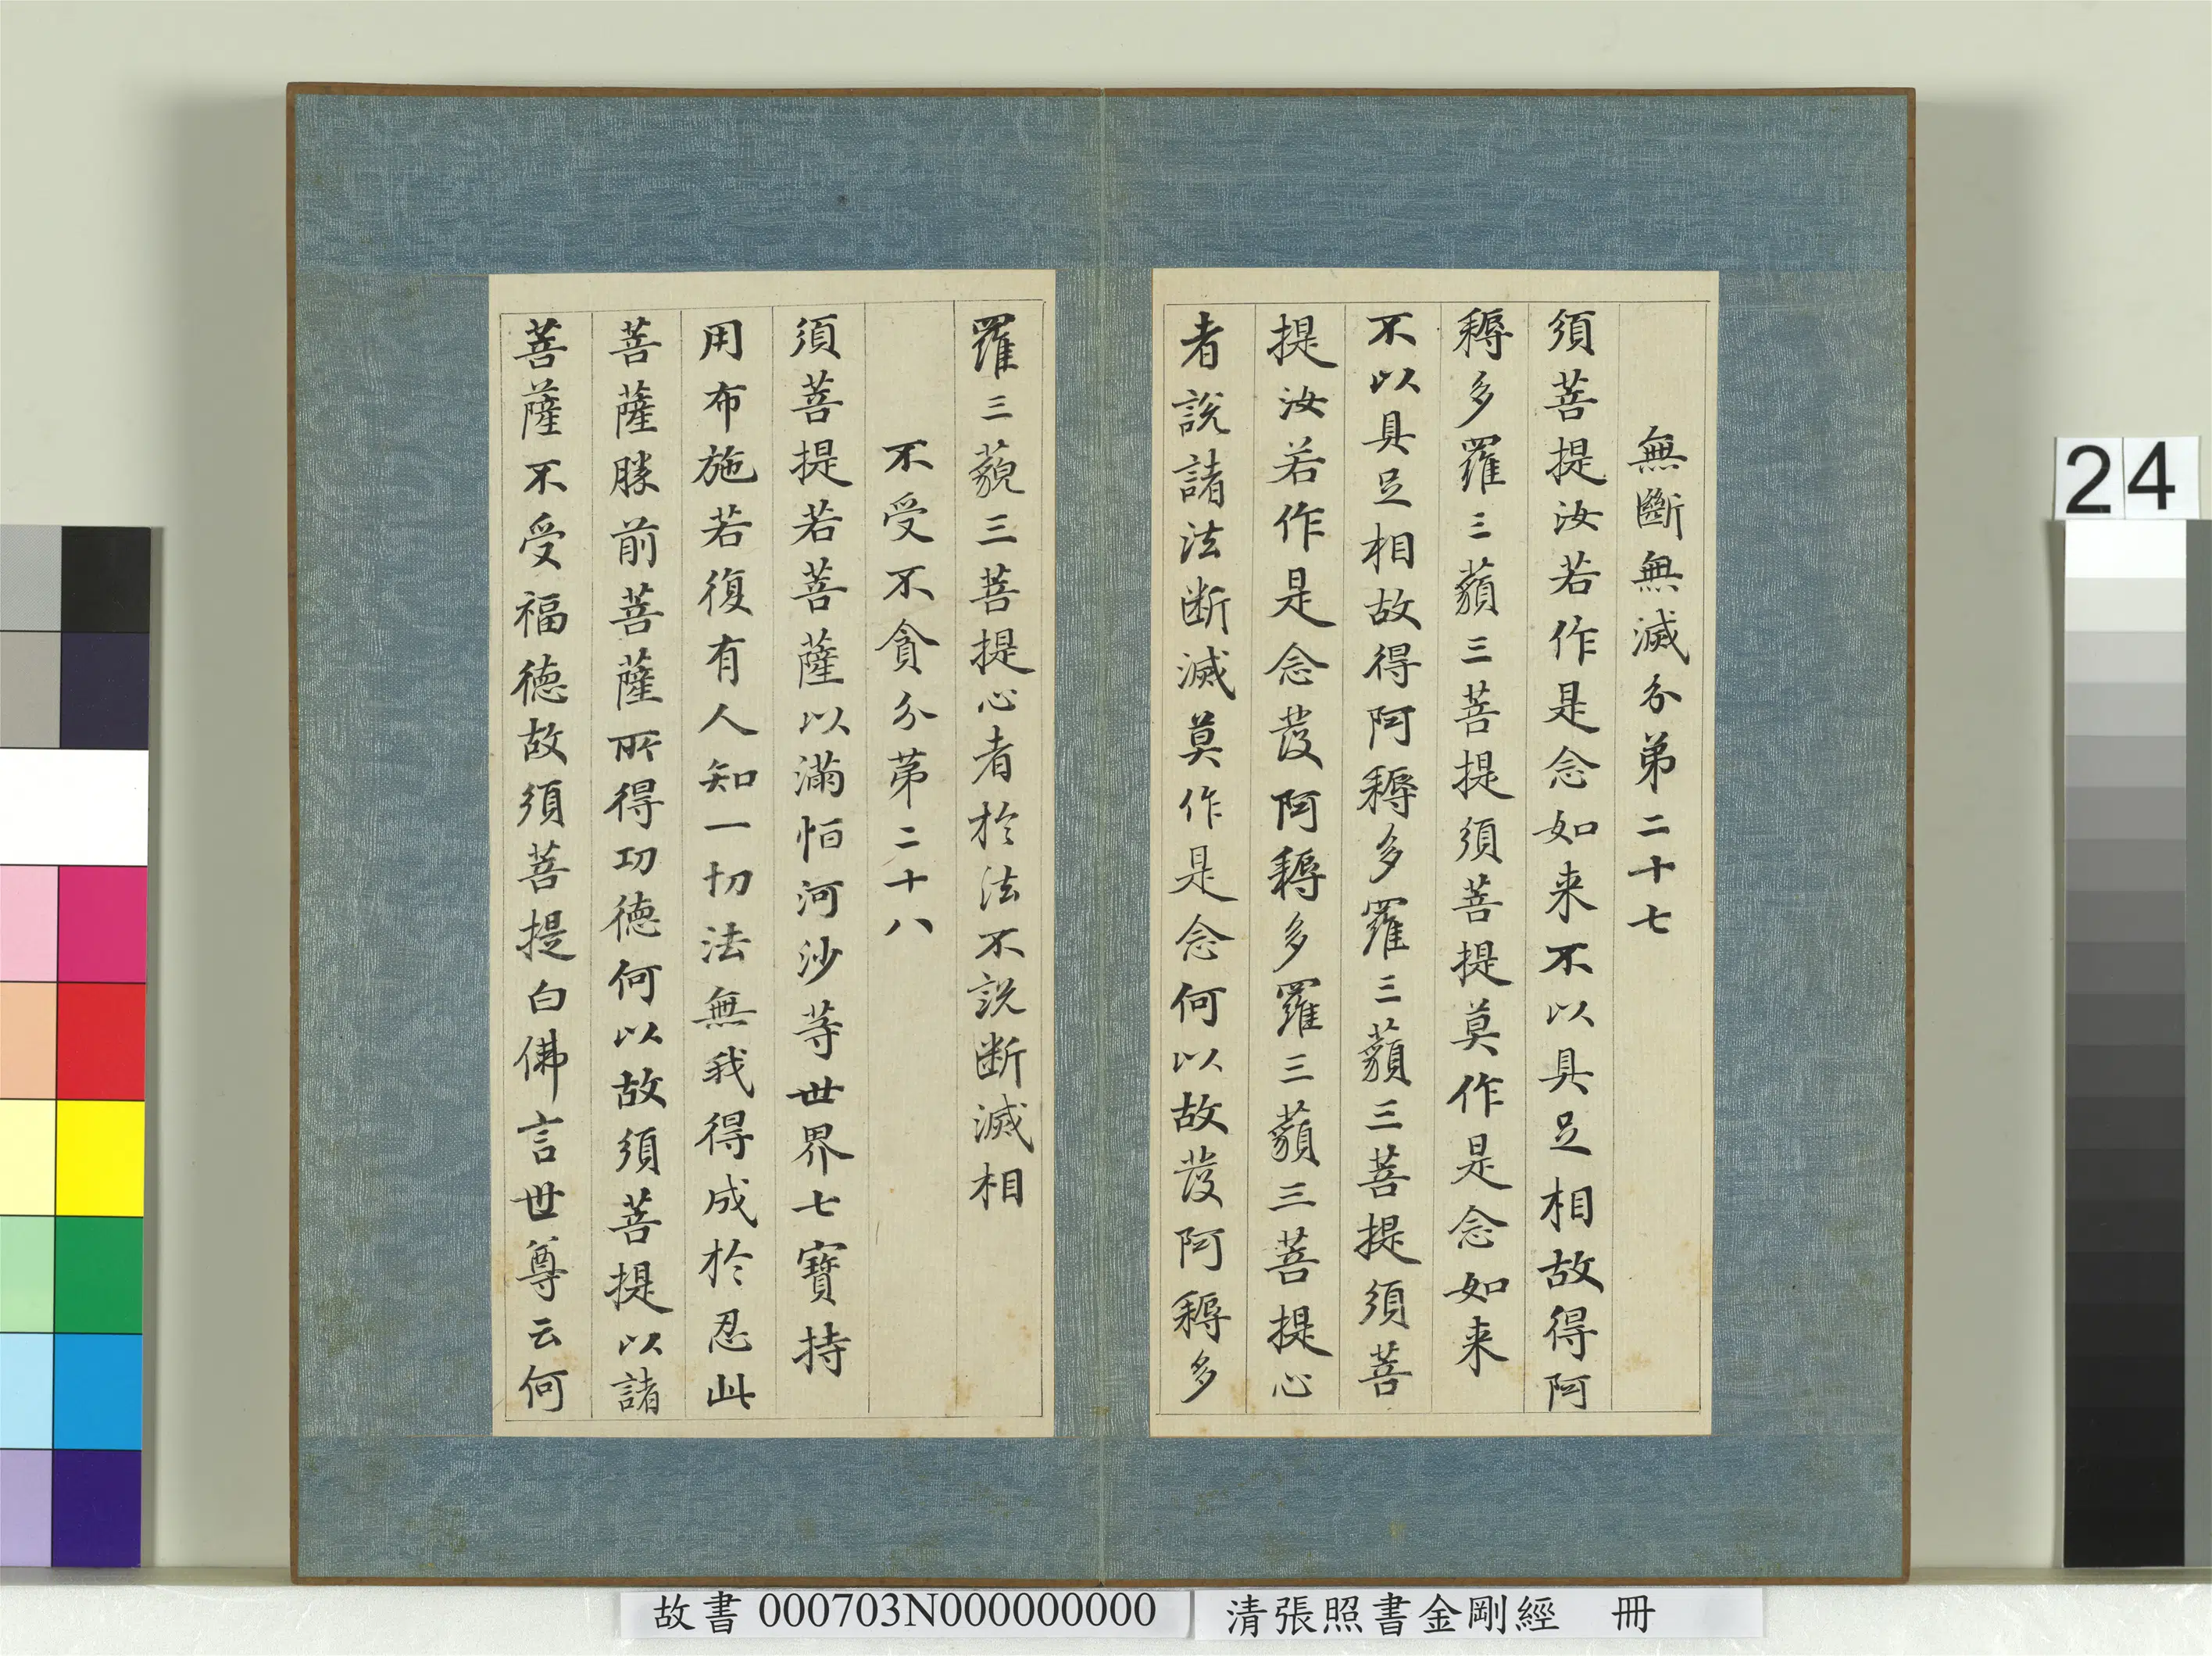 無斷無滅分第二十七
須菩提汝若作是念如来不以具足相故得阿
耨多羅三藐三菩提須菩提莫作是念如来
不以具足相故得阿耨多羅三藐三菩提須菩
提汝若作是念發阿耨多羅三藐三菩提心
者說諸法断滅莫作是念何以故發阿耨多
羅三藐三菩提心者於法不說断滅相
不受不貪分第二十八
須菩提若菩薩以滿恒河沙等世界七寶持
用布施若復有人知一切法無我得成於忍此
菩薩勝前菩薩所得功德何以故須菩提以諸
菩薩不受福德故須菩提白佛言世尊云何
24
故書 000703N000000000
清張照書金剛經 冊